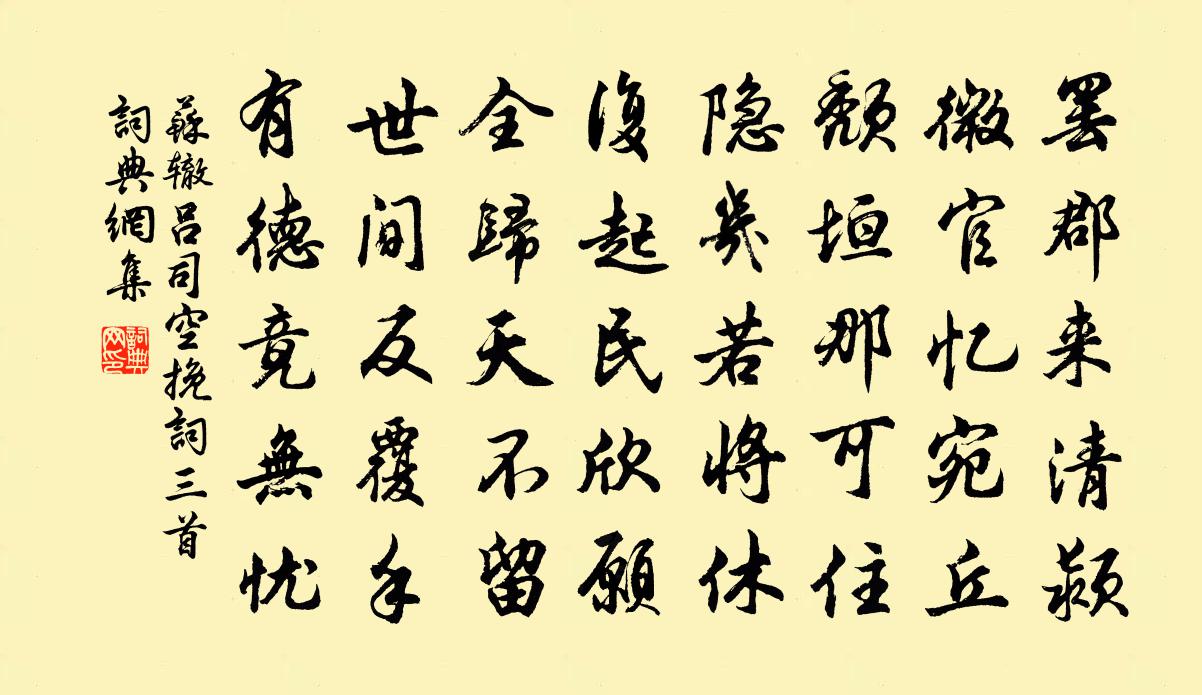 罢郡来清颍
微官忆宛丘
颓垣那可住
隐几若将休
復起民欣願
全歸天不留
世间反覆手
有德竟無忧
蘇辙吕司空挽詞三首
詞典網集
詞典网印